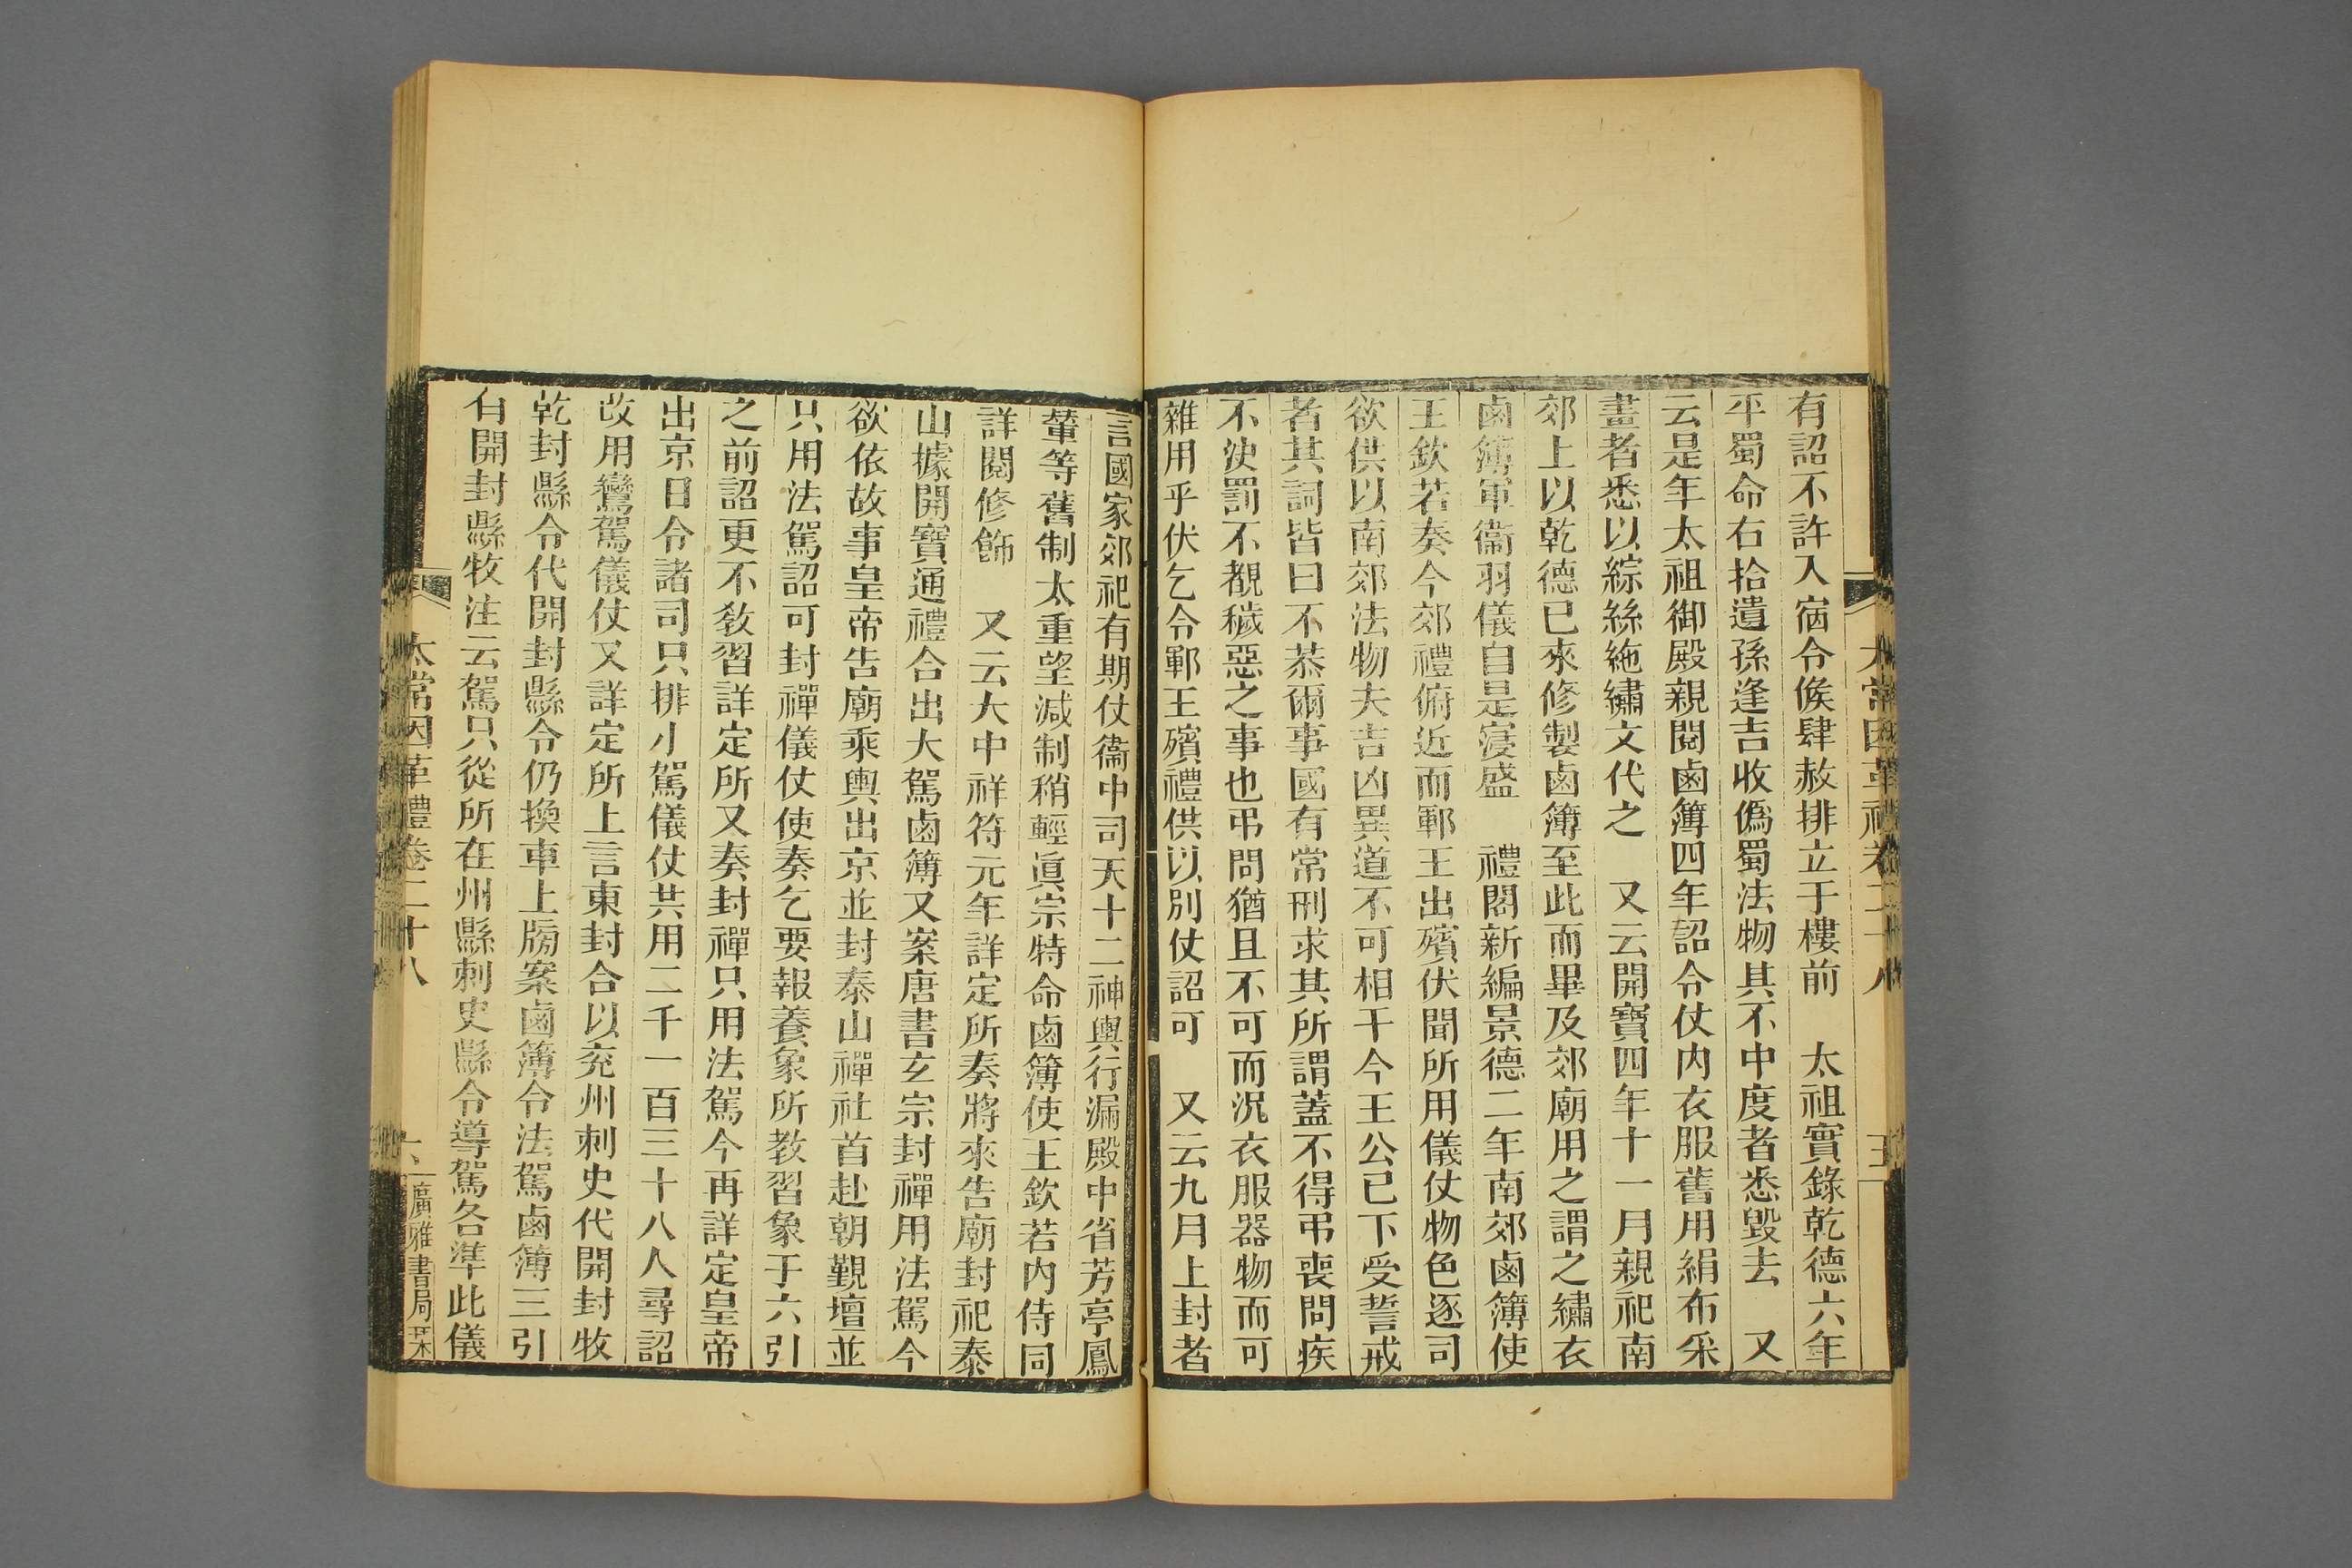 太常因革禮卷二十八
五
有詔不許入宿令候肆赦排立于樓前　太祖實錄乾德六年
平蜀命右拾遺孫逢吉收僞蜀法物其不中度者悉毀去　又
云是年太祖御殿親閱鹵簿四年詔令仗内衣服舊用絹布采
畫者悉以綜絲絁繡文代之　又云開寶四年十一月親祀南
郊上以乾德已來修製鹵簿至此而畢及郊廟用之謂之繡衣
鹵簿軍衞羽儀自是寖盛　禮閣新編景德二年南郊鹵簿使
王欽若奏今郊禮俯近而鄆王出殯伏聞所用儀仗物色逐司
欲供以南郊法物夫吉凶異道不可相干今王公已下受誓戒
者其詞皆曰不恭爾事國有常刑求其所謂蓋不得弔喪問疾
不決罰不覩穢惡之事也弔問猶且不可而況衣服器物而可
雜用乎伏乞令鄆王殯禮供以別仗詔可　又云九月上封者
言國家郊祀有期仗衞中司天十二神輿行漏殿中省芳亭鳳
輦等舊制太重望減制稍輕眞宗特命鹵簿使王欽若内侍同
詳閱修飾　又云大中祥符元年詳定所奏將來告廟封祀泰
山據開寶通禮合出大駕鹵簿又案唐書玄宗封禪用法駕今
欲依故事皇帝告廟乘輿出京並封泰山禪社首赴朝覲壇並
只用法駕詔可封禪儀仗使奏乞要報養象所教習象于六引
之前詔更不敎習詳定所又奏封禪只用法駕今再詳定皇帝
出京日令諸司只排小駕儀仗共用二千一百三十八人尋詔
改用鸞駕儀仗又詳定所上言東封合以兖州刺史代開封牧
乾封縣令代開封縣令仍換車上牓案鹵簿令法駕鹵簿三引
有開封縣牧注云駕只從所在州縣刺史縣令導駕各準此儀
太常因革禮卷二十八
六
廣雅書局栞